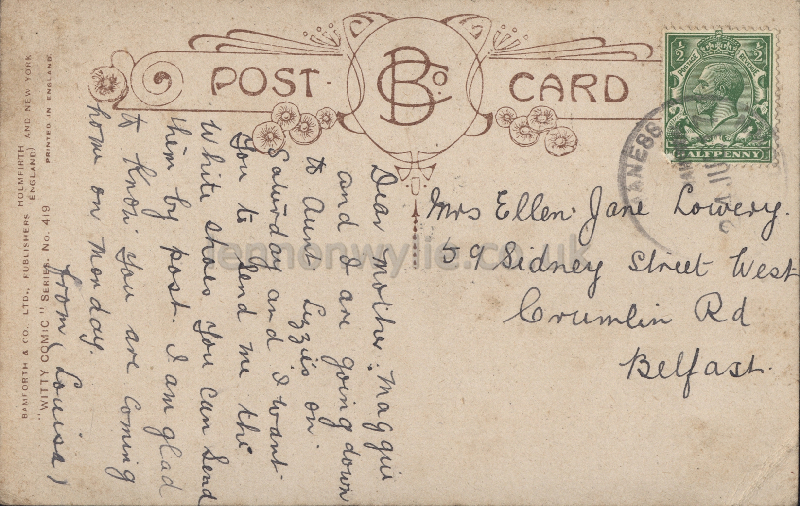 POST CARD
B Co.
½ ½
POSTAGE
HALFPENNY
BAMFORTH & CO., LTD., PUBLISHERS HOLMFIRTH AND NEW YORK
ENGLAND)
"WITTY COMIC" SERIES. No. 419 PRINTED IN ENGLAND
Dear Mother. Maggie
and I are going down
to Aunt Lizzies on
Saturday and I want
You to send me the
White shoes You can send
them by post. I am glad
to know You are coming
home on Monday.
from, Louisa,
Mrs Ellen Jane Lowery.
59 Sidney Street West
Crumlin Rd
Belfast.
lennonwylie.co.uk